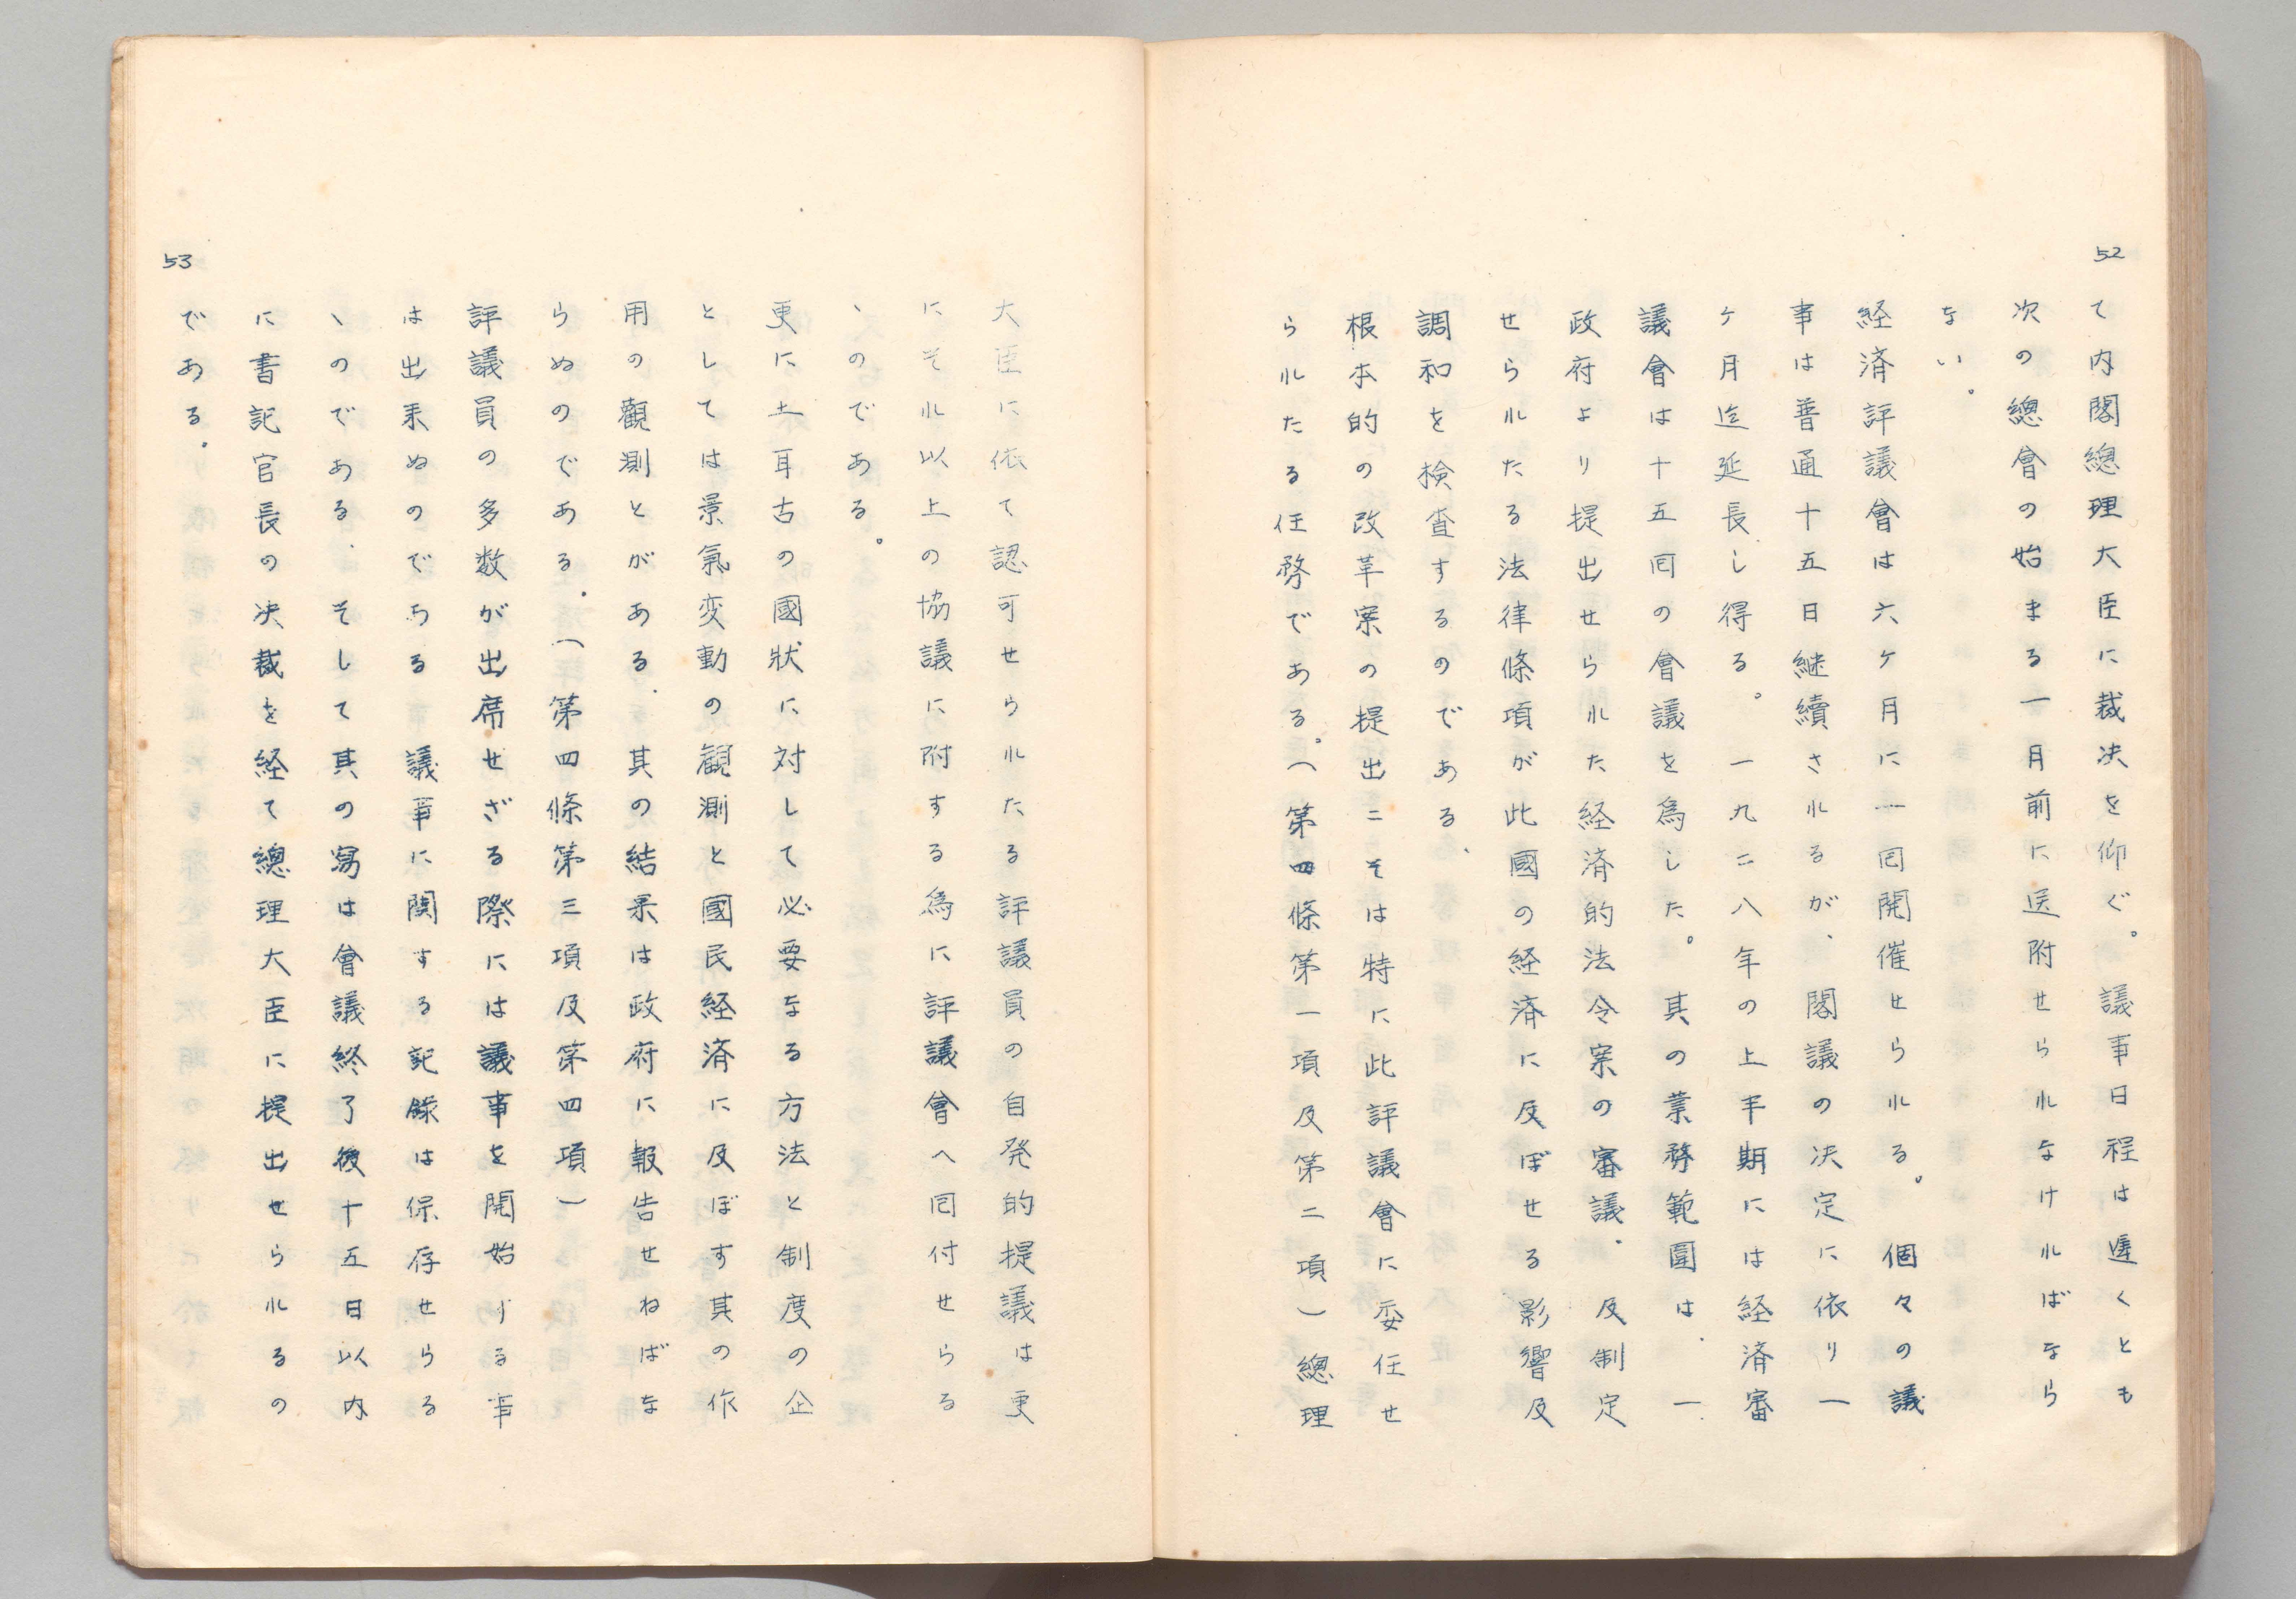 52
て内閣總理大臣に裁决を仰ぐ。議事日程は遲くとも
次の總會の始まる一月前に送附せられなければなら
ない。
経済評議會は六ヶ月に一囘開催せられる。個々の議
事は普通十五日継續されるが、閣議の决定に依り一
ヶ月迄延長し得る。一九二八年の上半期には経済審
議會は十五囘の會議を為した。其の業務範圍は、一、
政府より提出せられた経済的法令案の審議、及制定
せられたる法律條項が此國の経済に及ぼせる影響及
調和を検査するのである、
根本的の改革案の提出こそは特に此評議會に委任せ
られたる任務である。（第四條第一項及第二項）總理
大臣に依て認可せられたる評議員の自発的提議は更
にそれ以上の協議に附する為に評議會へ囘付せらる
ゝのである。
更に土耳古の國状に対して必要なる方法と制度の企
としては景氣変動の観測と國民経済に及ぼす其の作
用の觀測とがある、其の結果は政府に報告せねばな
らぬのである。（第四條第三項及第四項）
評議員の多数が出席せざる際には議事を開始する事
は出来ぬのである 議事に関する記録は保存せらる
ゝのである、そして其の寫は會議終了後十五日以内
に書記官長の决裁を経て總理大臣に提出せられるの
である。
53